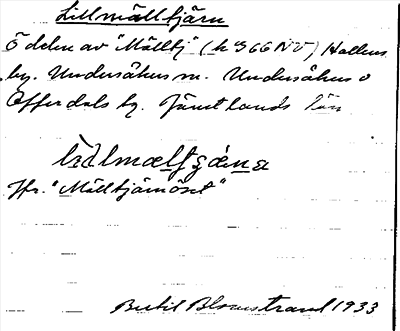 Lillmälltjärn
Ö delen av "Mälltj" (h 366 NV) Hallens
by. Undersåkers m. Undersåkers o
Offerdals by. Jämtlands län
Jfr. "Mälltjärnöset"
Bertil Blomstrand 1933